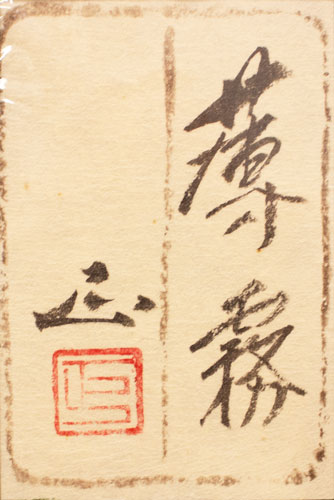 薄霧
正